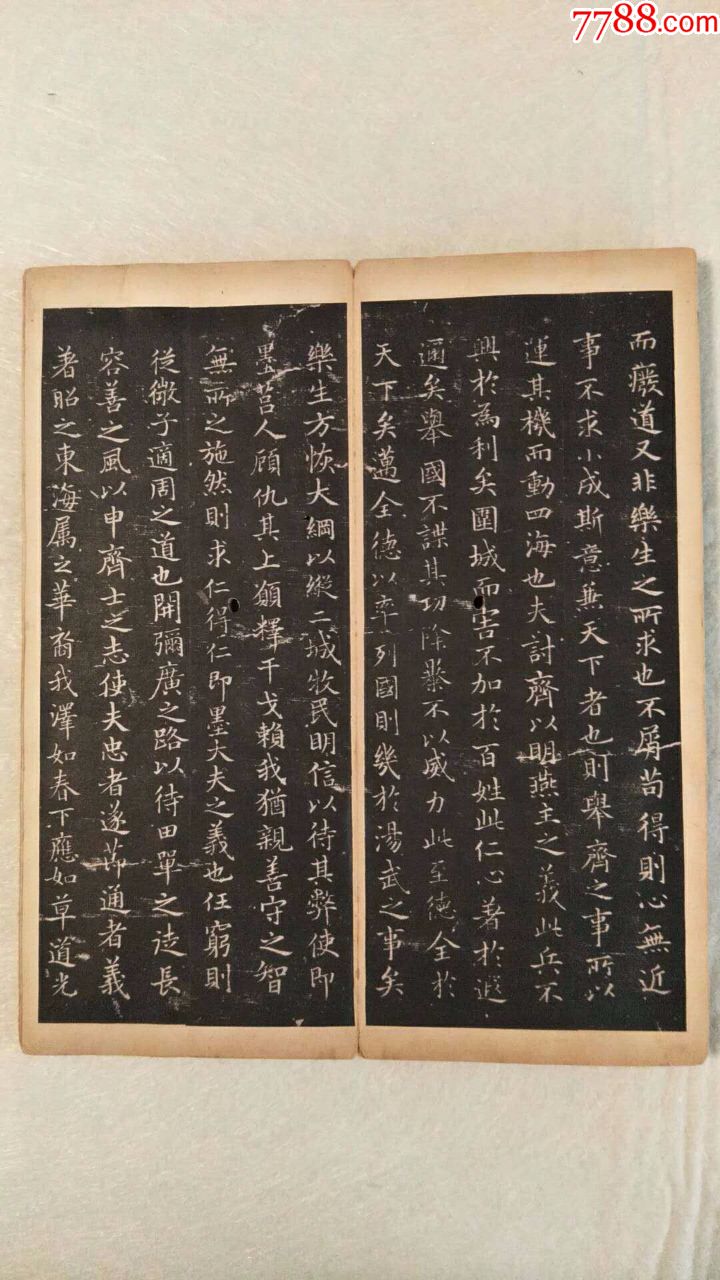 7788.com
而廢道又非樂生之所求也不屑茍得則心無近
事不求小成斯意無天下者也則舉齊之事所以
運其機而動四海也夫討齊以明燕主之義此兵不
興於為利矣圍城而害不加於百姓此仁心著於遐
通矣舉國不謀其功除暴不以威力此至德全於
天下矣邁全德以率列國則幾於湯武之事矣
樂生方恢大綱以縱二城牧民明信以待其弊使即
墨莒人顧仇其上願釋干戈賴我猶親善守之智
無所之施然則求仁得仁即墨大夫之義也任窮則
從微子適周之道也開彌廣之路以待田單之徒長
容善之風以申齊士之志使夫忠者遂節通者義
著昭之東海屬之華裔我澤如春下應如草道光